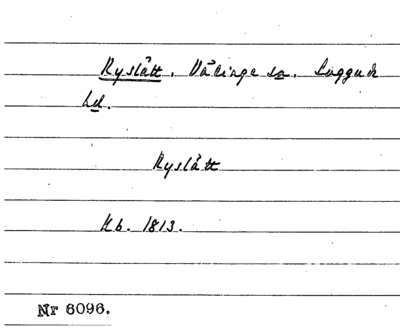 Ryslätt. Välinge sn. Luggude
hd.
Ryslätt
Kb. 1813.
Nr 6096.